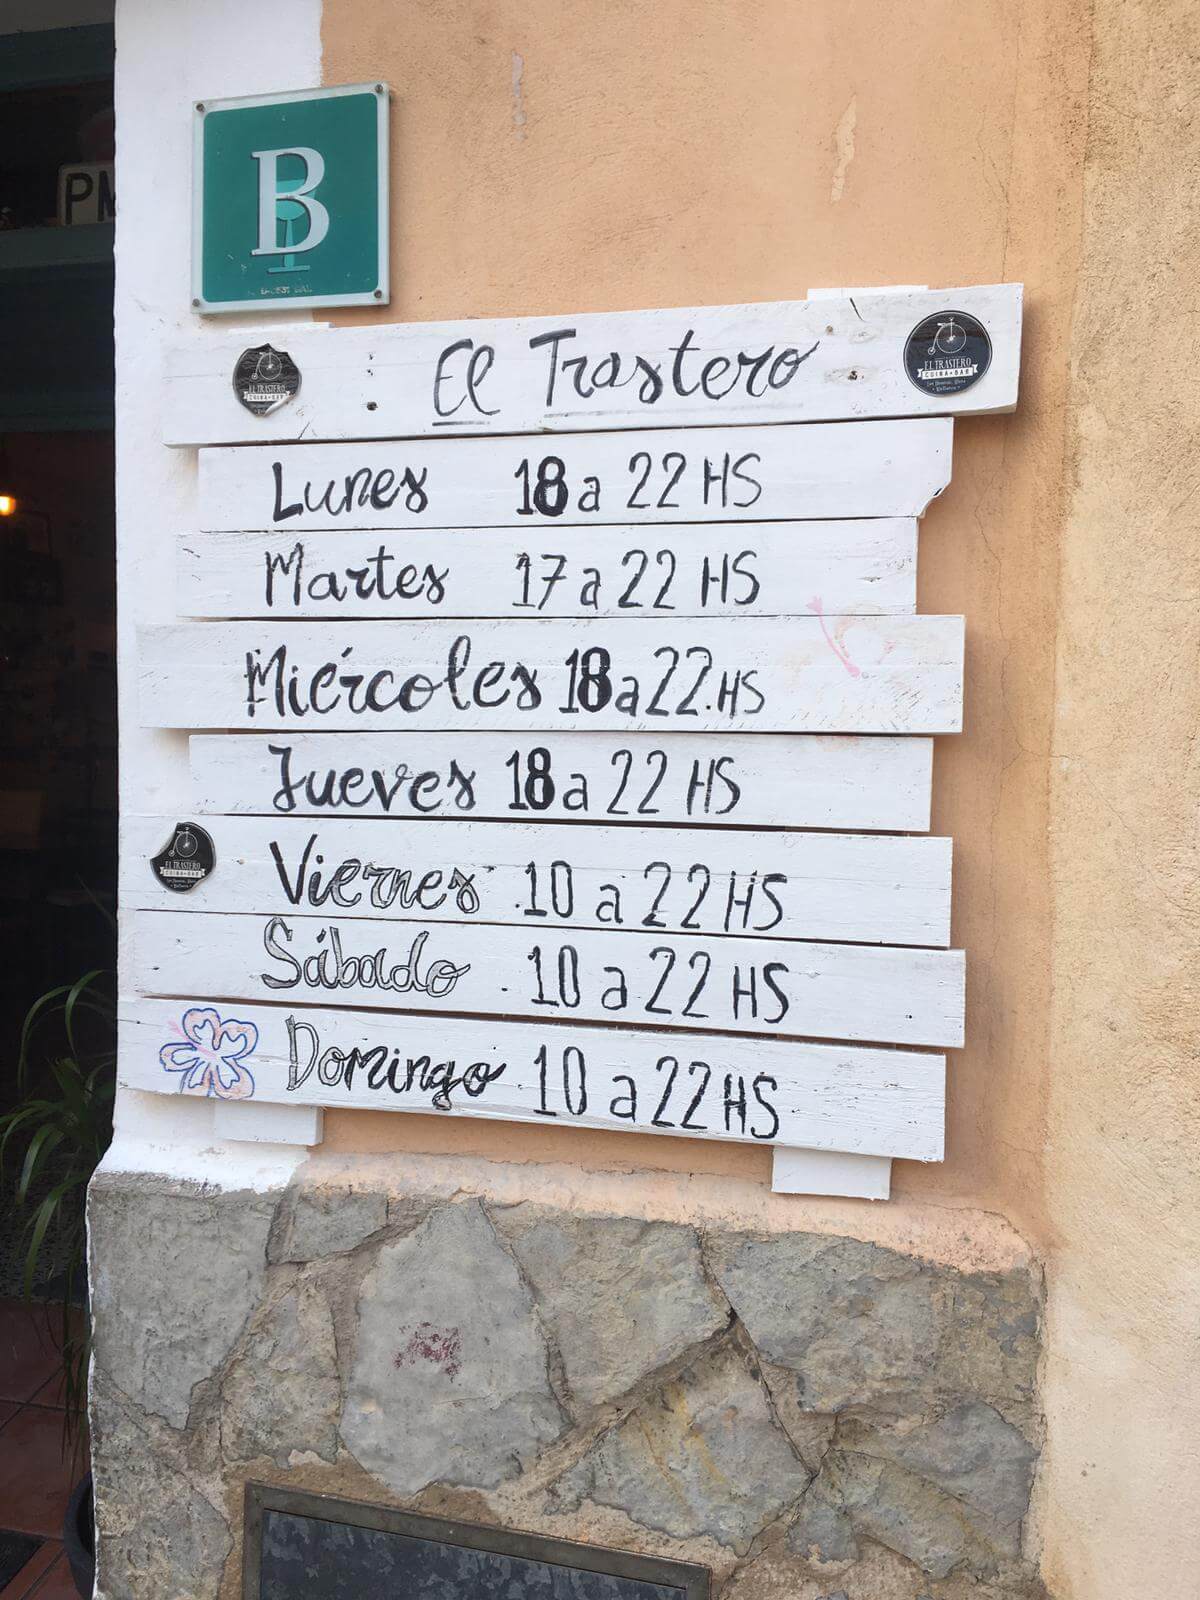 PM
B
El Trastero
EL TRASTERO
CUINA & BAR
EL TRASTERO
CUINA & BAR
Lunes 18 a 22 HS
Martes 17 a 22 HS
Miércoles 18 a 22. HS
Jueves 18 a 22 HS
EL TRASTERO
CUINA & BAR
Viernes 10 a 22 HS
Sábado 10 a 22 HS
Domingo 10 a 22 HS